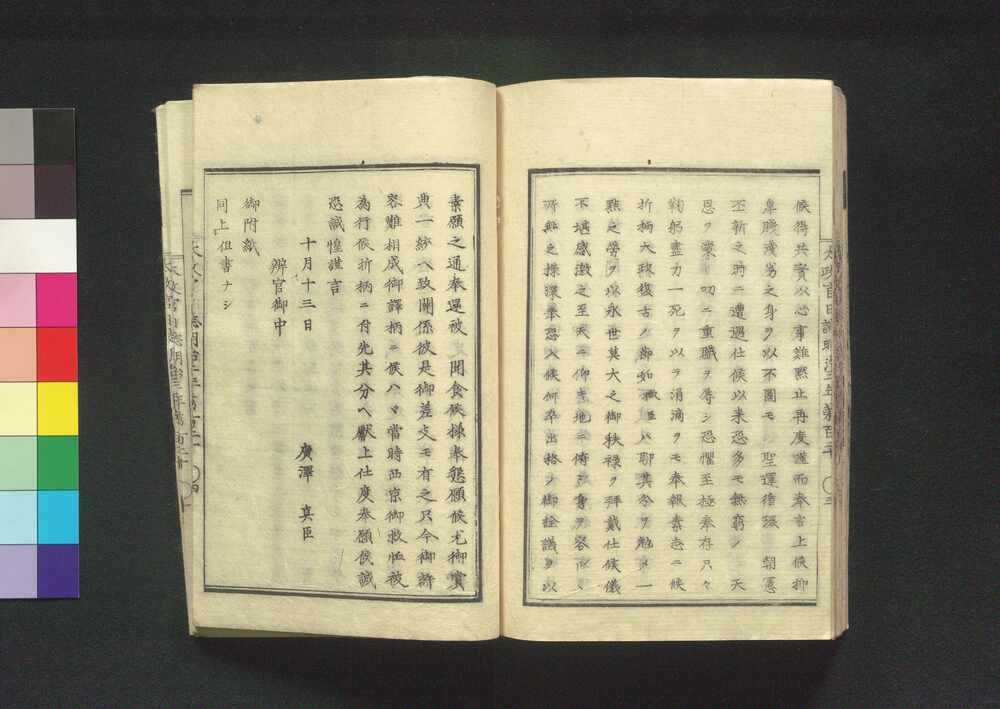 候得共實以心事難黙止再度謹而奉言上候抑
真臣殘劣之身ヲ以不圖モ 聖運循環 朝憲
丕新之時ニ遭遇仕候以来恐多モ無窮ノ 天
恩ヲ蒙リ叨ニ重職ヲ辱シ恐懼至極奉存只々
鞠躬盡力一死ヲ以テ涓滴ヲモ奉報素志ニ候
折柄大政復古ノ節如微臣ハ聊其分ヲ勉メ一
點之勞ヲ以永世莫大之御秩禄ヲ拜戴仕候儀
不堪感激之至天ニ仰キ地ニ俯シ身ヲ容ルヽ
所無之操深奉恐入候何卒出格ノ御詮議ヲ以
素願之通奉還被 聞食候様奉懇願候尤御賞
典一紙ヘ致關係彼是御差支モ有之只今御許
容難相成御譯柄ニ候ハヽ當時西京御救恤被
為行候折柄ニ付先其分ヘ獻上仕度奉願候誠
恐誠惶謹言
十月十三日 廣澤 真臣
辨官御中
御附紙
同上但書ナシ
太政官日誌明治二年第百二十 〇三
〇四